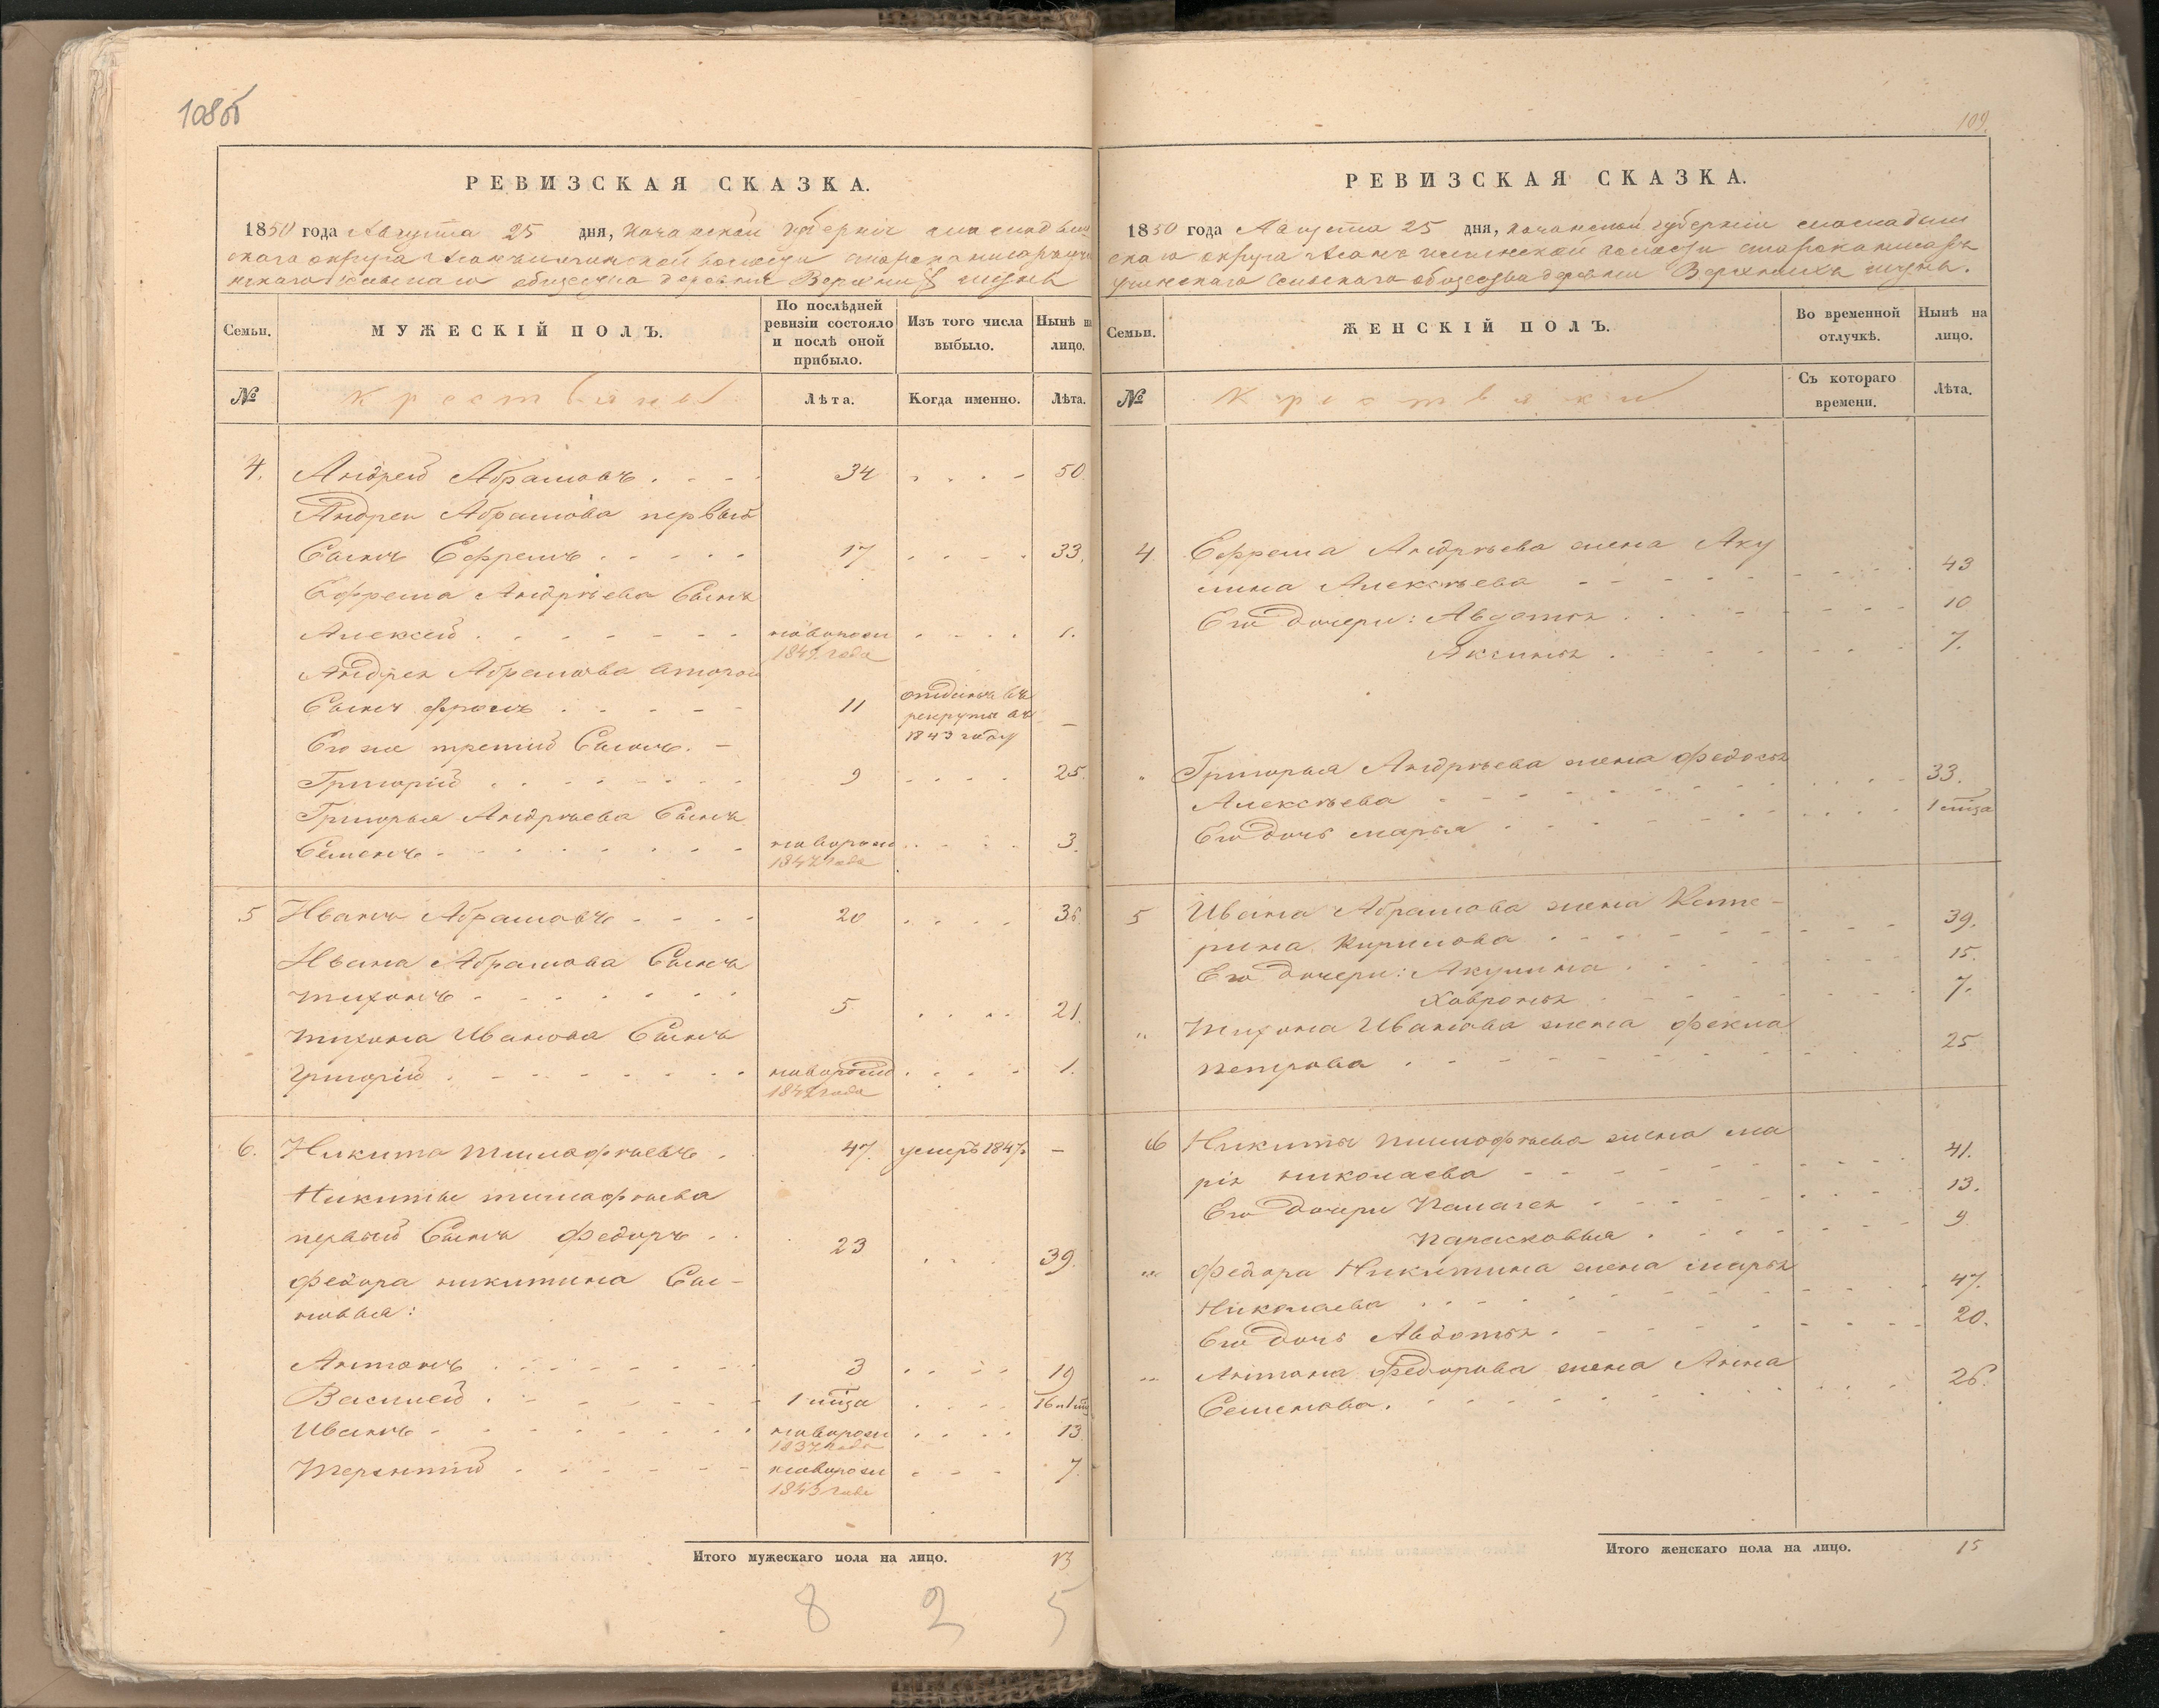 108об
РЕВИЗСКАЯ СКАЗКА.
1850 года Августа 25 дня, Казанской губернiи
скаго округа волости
скаго общества деревни Верхнихъ
Семьи.
МУЖЕСКІЙ ПОЛЪ.
По послѣдней ревизіи состояло и послѣ оной прибыло.
Изъ того числа выбыло.
Нынѣ на лицо.
№
Крестьяне
Лѣта.
Когда именно.
Лѣта.
4. Андрей Абрамовъ 34 50
Андрея Абрамова первый
Сынъ Ефремъ 17 33.
Ефрема Андрѣева Сынъ
Алексей новорож 1849 года 1.
Андрея Абрамова второй
Сынъ фролъ 11 отданъ въ рекруты въ 1843 году —
Его же третий Сынъ. —
Григорій 9 25.
Григорья Андрѣева Сынъ
Семенъ новорож 1847 года 3.
5 Иванъ Абрамовъ 20 36
Ивана Абрамова Сынъ
тихонъ 5 21.
тихона Иванова Сынъ
Григорій новорож 1849 года 1.
6. Никита тимофѣевъ 47. умеръ 1847. —
Никиты тимофѣева
первый Сынъ федоръ 23 39.
федора никитина Сы-
новья:
Антонъ 3 19
Василей 1 мѣца 16 и 1 мѣц
Иванъ новорож 1837 года 13.
терентий новорож 1843 года 7.
Итого мужескаго пола на лицо. 13
8 2 5
109.
РЕВИЗСКАЯ СКАЗКА.
1850 года Августа 25 дня, казанской губерніи
скаго округа волости
Сельскаго общества деревни Верхнихъ
Семьи.
ЖЕНСКІЙ ПОЛЪ.
Во временной отлучкѣ.
Нынѣ на лицо.
№
Крестьянки
Съ котораго времени.
Лѣта.
4 Ефрема Андрѣева жена Аку
лина Алексѣева 43
Его дочери: Авдотья 10
Аксинья 7.
Григорья Андрѣева жена федосья
Алексѣева 33.
Его дочь марья 1 мѣца
5 Ивана Абрамова жена Кате-
рина Кирилова 39.
Его дочери: Акулина 15.
Хавронья 7.
тихона Иванова жена фекла
петрова 25
6 Никиты тимофѣева жена ма
рія николаева 41.
Его дочери Палагея 13.
парасковья 9
федора Никитина жена марья
Николаева 47.
Его дочь Авдотья 20.
Антона Федорова жена Анна
Семенова. 26.
Итого женскаго пола на лицо. 15